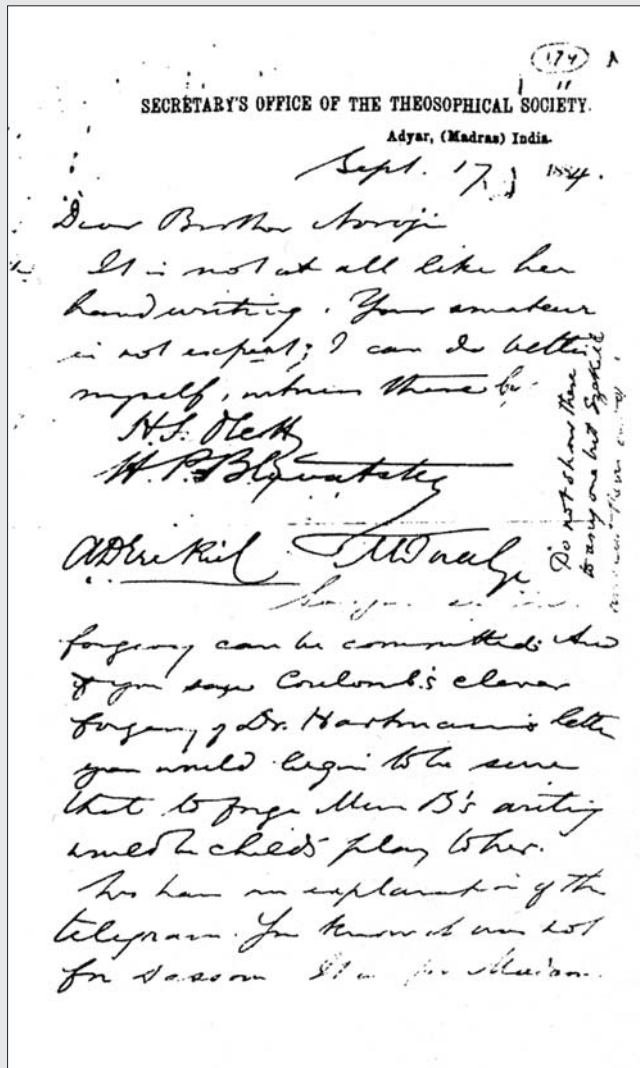 174
SECRETARY'S OFFICE OF THE THEOSOPHICAL SOCIETY.
Adyar, (Madras) India.
Sept. 17, 1884.
Dear Brother Noroji
It is not at all like her
handwriting. Your amateur
is not expert; I can do better
myself, witness these
H. S. Olcott
H. P. Blavatsky
A D Ezekiel
forgery can be committed. And
if you saw Coulomb's clever
forgery of Dr. Hartmann's letter
you would begin to be sure
that to forge Mme B's writing
would be child's play to her.
an explanation of the
telegram. You know it was not
for Sassoon It is for
Do not show these
to any one but Ezekiel